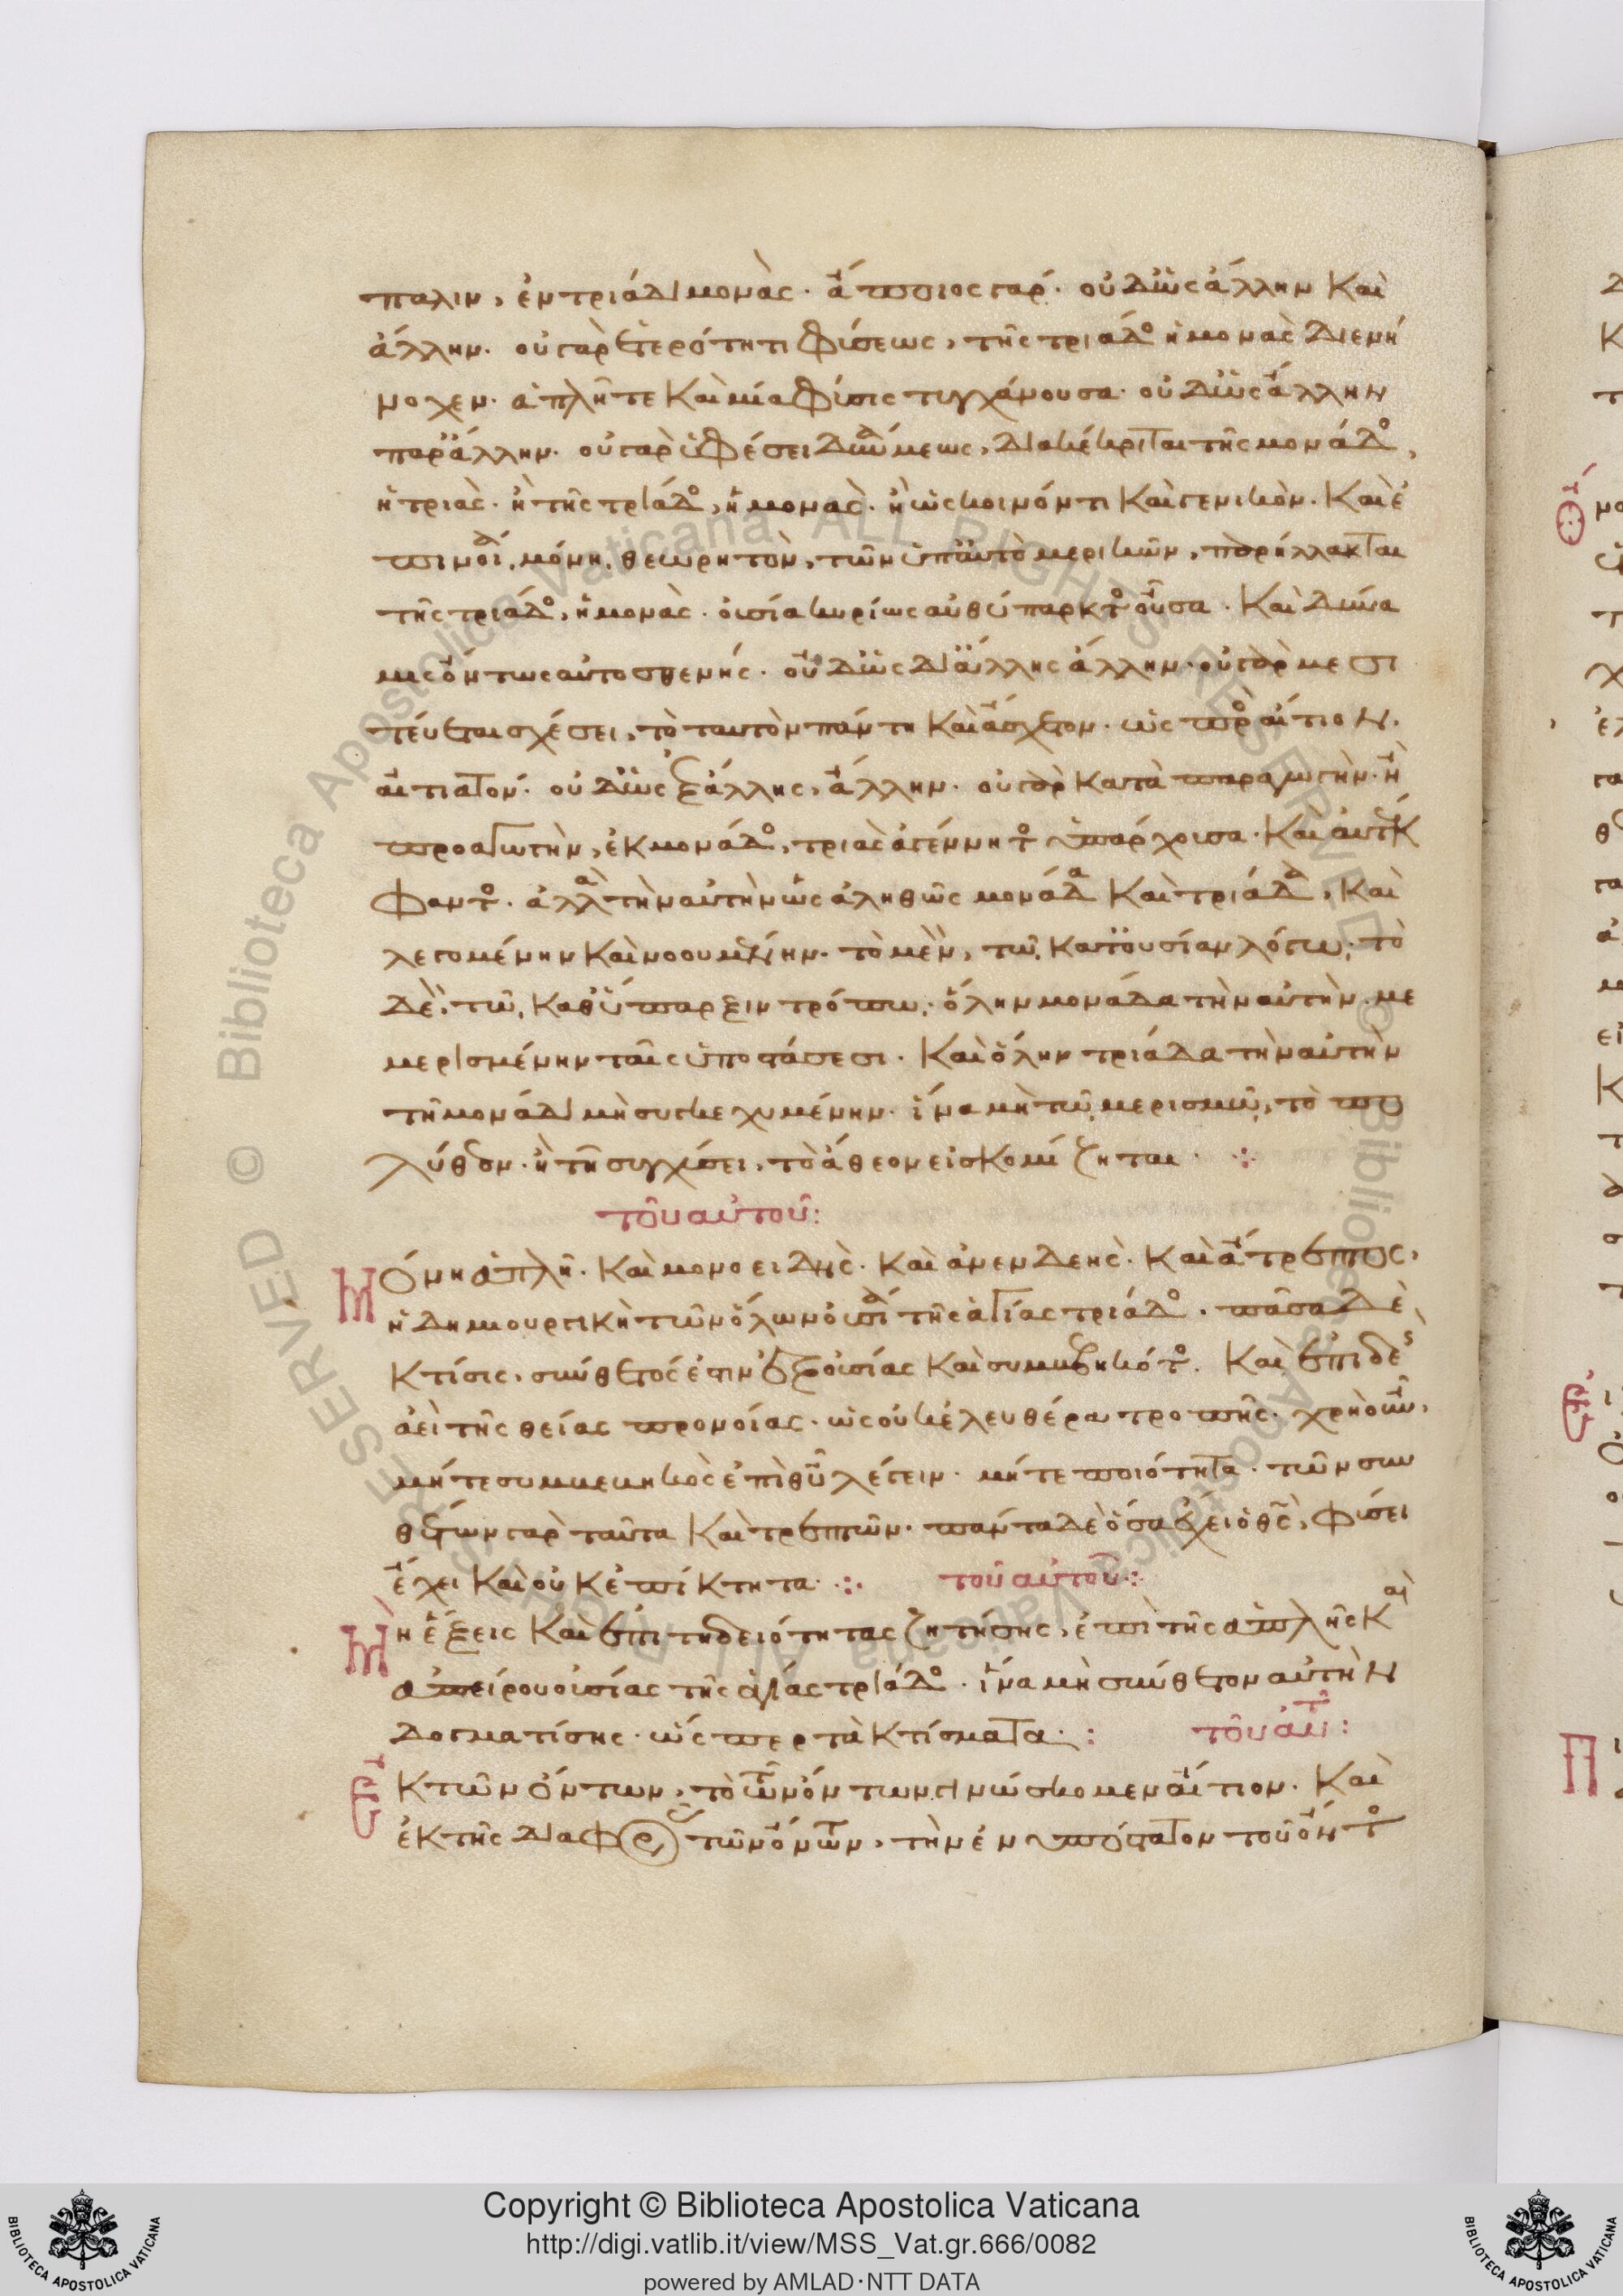 πάλιν, ἐν τριάδι μονὰς. ἄποιος γάρ. οὐδ' ὡς ἄλλην καὶ
ἄλλην. οὐ γὰρ ἑτερότητι φύσεως, τῆς τριάδος ἡ μονὰς διενή
νοχεν. ἁπλῆ τε καὶ μία φύσις τυγχάνουσα. οὐδ' ὡς ἄλλην
παρ' ἄλλην. οὐ γὰρ ὑφέσει δυνάμεως, διακέκριται τῆς μονάδος,
ἡ τριὰς. ἢ τῆς τριάδος, ἡ μονὰς. ἢ ὡς κοινόν τι καὶ γενικὸν. καὶ ἐ
πινοίᾳ μόνῃ θεωρητὸν, τῶν ὑπ' αὐτὸ μερικῶν, παρήλλακται
τῆς τριάδος, ἡ μονὰς. οὐσία κυρίως αὐθύπαρκτος οὖσα. καὶ δύνα
μις ὄντως αὐτοσθενής. οὐδ' ὡς δι' ἄλλης ἄλλην. οὐ γὰρ μεσι
τέυεται σχέσει, τὸ ταυτὸν πάντη καὶ ἄσχετον. ὡς πρὸς αἴτιον,
αἰτιατόν. οὐδ' ὡς ἐξ ἄλλης, ἄλλην. οὐ γὰρ κατὰ παραγωγὴν. ἢ
προαγωγὴν, ἐκ μονάδος, τριὰς ἀγέννητος ὑπάρχουσα. καὶ αὐτέκ
φαντος. ἀλλὰ τὴν αὐτὴν ὡς ἀληθῶς μονάδα καὶ τριάδα, καὶ
λεγομένην καὶ νοουμένην. τὸ μὲν, τῷ κατ' οὐσίαν λόγῳ. τὸ
δὲ, τῷ καθ' ὕπαρξιν τρόπῳ. ὅλην μονάδα τὴν αὐτὴν. με
μερισμένην ταῖς ὑποστάσεσι. καὶ ὅλην τριάδα τὴν αὐτὴν
τῇ μονάδι μὴ συγκεχυμένην. ἵνα μὴ τῷ μερισμῷ, τὸ πο
λύθεον. ἢ τῇ συγχύσει, τὸ ἄθεον εἰσκομίζηται.
τοῦ αὐτοῦ:
Μόνη ἁπλῆ. καὶ μονοειδὴς. καὶ ἀνενδεὴς. καὶ ἄτρεπτος,
ἡ δημιουργικὴ τῶν ὅλων οὐσία τῆς ἁγίας τριάδος. πᾶσα δὲ
κτίσις, σύνθετός ἐστιν ἐξ οὐσίας καὶ συμβεβηκότος. καὶ ἐπιδεὴς
ἀεὶ τῆς θείας προνοίας. ὡς οὐκ ἐλευθέρα τροπῆς. χρὴ οὖν,
μήτε συμβεβηκὸς ἐπὶ θεοῦ λέγειν. μήτε ποιότητα. τῶν συν
θέτων γὰρ ταῦτα καὶ τρεπτῶν. πάντα δὲ ὅσα ἔχει ὁ θσ, φύσει
ἔχει καὶ οὐκ ἐπίκτητα. τοῦ αὐτοῦ:
Μὴ ἕξεις καὶ ἐπιτηδειότητας ζητήσῃς, ἐπὶ τῆς ἁπλῆς καὶ
ἀπείρου οὐσίας τῆς ἁγίας τριάδος. ἵνα μὴ σύνθετον αὐτὴν
δογματίσῃς. ὥσπερ τὰ κτίσματα: τοῦ αὐτοῦ:
Ἐκ τῶν ὄντων, τὸ τῶν ὄντων γινώσκομεν αἴτιον. καὶ
ἐκ τῆς διαφορᾶς τῶν ὄντων, τὴν ἐνυπόστατον τοῦ ὄντος
Copyright © Biblioteca Apostolica Vaticana
http://digi.vatlib.it/view/MSS_Vat.gr.666/0082
powered by AMLAD·NTT DATA
BIBLIOTECA APOSTOLICA VATICANA
BIBLIOTECA APOSTOLICA VATICANA